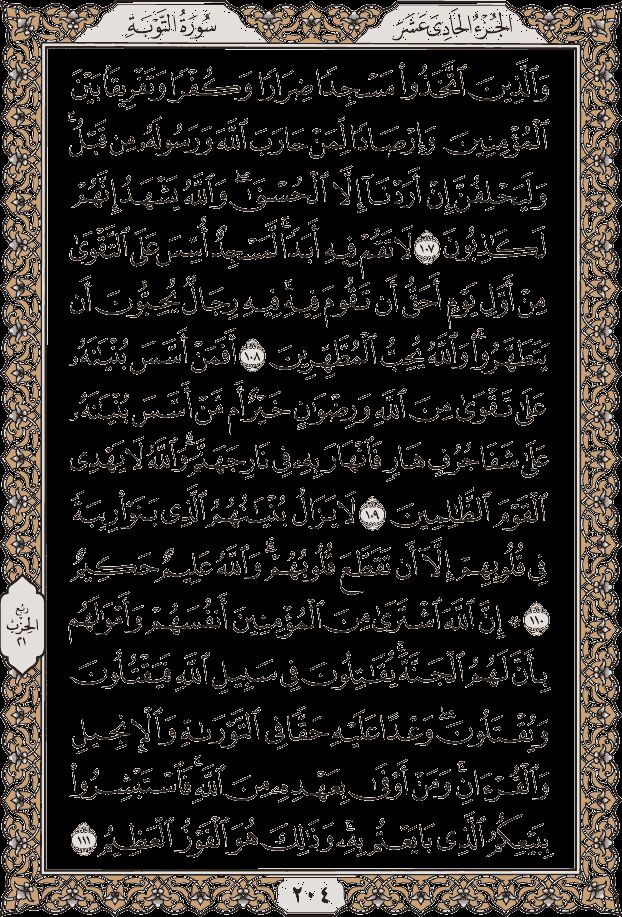 الجزء الحادي عشر
سورة التوبة
وَٱلَّذِينَ ٱتَّخَذُواْ مَسۡجِدٗا ضِرَارٗا وَكُفۡرٗا وَتَفۡرِيقَۢا بَيۡنَ
ٱلۡمُؤۡمِنِينَ وَإِرۡصَادٗا لِّمَنۡ حَارَبَ ٱللَّهَ وَرَسُولَهُۥ مِن قَبۡلُۚ
وَلَيَحۡلِفُنَّ إِنۡ أَرَدۡنَآ إِلَّا ٱلۡحُسۡنَىٰۖ وَٱللَّهُ يَشۡهَدُ إِنَّهُمۡ
لَكَٰذِبُونَ ١٠٧ لَا تَقُمۡ فِيهِ أَبَدٗاۚ لَّمَسۡجِدٌ أُسِّسَ عَلَى ٱلتَّقۡوَىٰ
مِنۡ أَوَّلِ يَوۡمٍ أَحَقُّ أَن تَقُومَ فِيهِۚ فِيهِ رِجَالٞ يُحِبُّونَ أَن
يَتَطَهَّرُواْۚ وَٱللَّهُ يُحِبُّ ٱلۡمُطَّهِّرِينَ ١٠٨ أَفَمَنۡ أَسَّسَ بُنۡيَٰنَهُۥ
عَلَىٰ تَقۡوَىٰ مِنَ ٱللَّهِ وَرِضۡوَٰنٍ خَيۡرٌ أَم مَّنۡ أَسَّسَ بُنۡيَٰنَهُۥ
عَلَىٰ شَفَا جُرُفٍ هَارٖ فَٱنۡهَارَ بِهِۦ فِي نَارِ جَهَنَّمَۗ وَٱللَّهُ لَا يَهۡدِي
ٱلۡقَوۡمَ ٱلظَّٰلِمِينَ ١٠٩ لَا يَزَالُ بُنۡيَٰنُهُمُ ٱلَّذِي بَنَوۡاْ رِيبَةٗ
فِي قُلُوبِهِمۡ إِلَّآ أَن تَقَطَّعَ قُلُوبُهُمۡۗ وَٱللَّهُ عَلِيمٌ حَكِيمٌ
١١٠ ۞ إِنَّ ٱللَّهَ ٱشۡتَرَىٰ مِنَ ٱلۡمُؤۡمِنِينَ أَنفُسَهُمۡ وَأَمۡوَٰلَهُم
بِأَنَّ لَهُمُ ٱلۡجَنَّةَۚ يُقَٰتِلُونَ فِي سَبِيلِ ٱللَّهِ فَيَقۡتُلُونَ
وَيُقۡتَلُونَۖ وَعۡدًا عَلَيۡهِ حَقّٗا فِي ٱلتَّوۡرَىٰةِ وَٱلۡإِنجِيلِ
وَٱلۡقُرۡءَانِۚ وَمَنۡ أَوۡفَىٰ بِعَهۡدِهِۦ مِنَ ٱللَّهِۚ فَٱسۡتَبۡشِرُواْ
بِبَيۡعِكُمُ ٱلَّذِي بَايَعۡتُم بِهِۦۚ وَذَٰلِكَ هُوَ ٱلۡفَوۡزُ ٱلۡعَظِيمُ ١١١
ربع
الحزب
٢١
٢٠٤